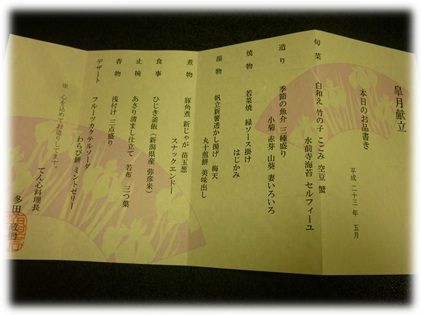 皐月献立
本日のお品書き
平成二十三年 五月
旬菜 白和え 竹の子 こごみ 空豆 蟹
水前寺海苔 セルフィーユ
造り 季節の魚介 三種盛り
小菊 赤芽 山葵 妻いろいろ
焼物 若菜焼 緑ソース掛け
はじかみ
揚物 帆立新薯透かし揚げ 梅天
丸十煎餅 美味出し
煮物 豚角煮 新じゃが 苗玉葱
スナックエンドー
食事 ひじき釜飯(新潟県産 弥彦米)
止椀 あさり清まし仕立て 若布 三つ葉
香物 浅付け 三点盛り
デザート フルーツカクテルソーダ
わらび餅 ミントゼリー
心を込めてお造りしてます。
てん心料理長
多田